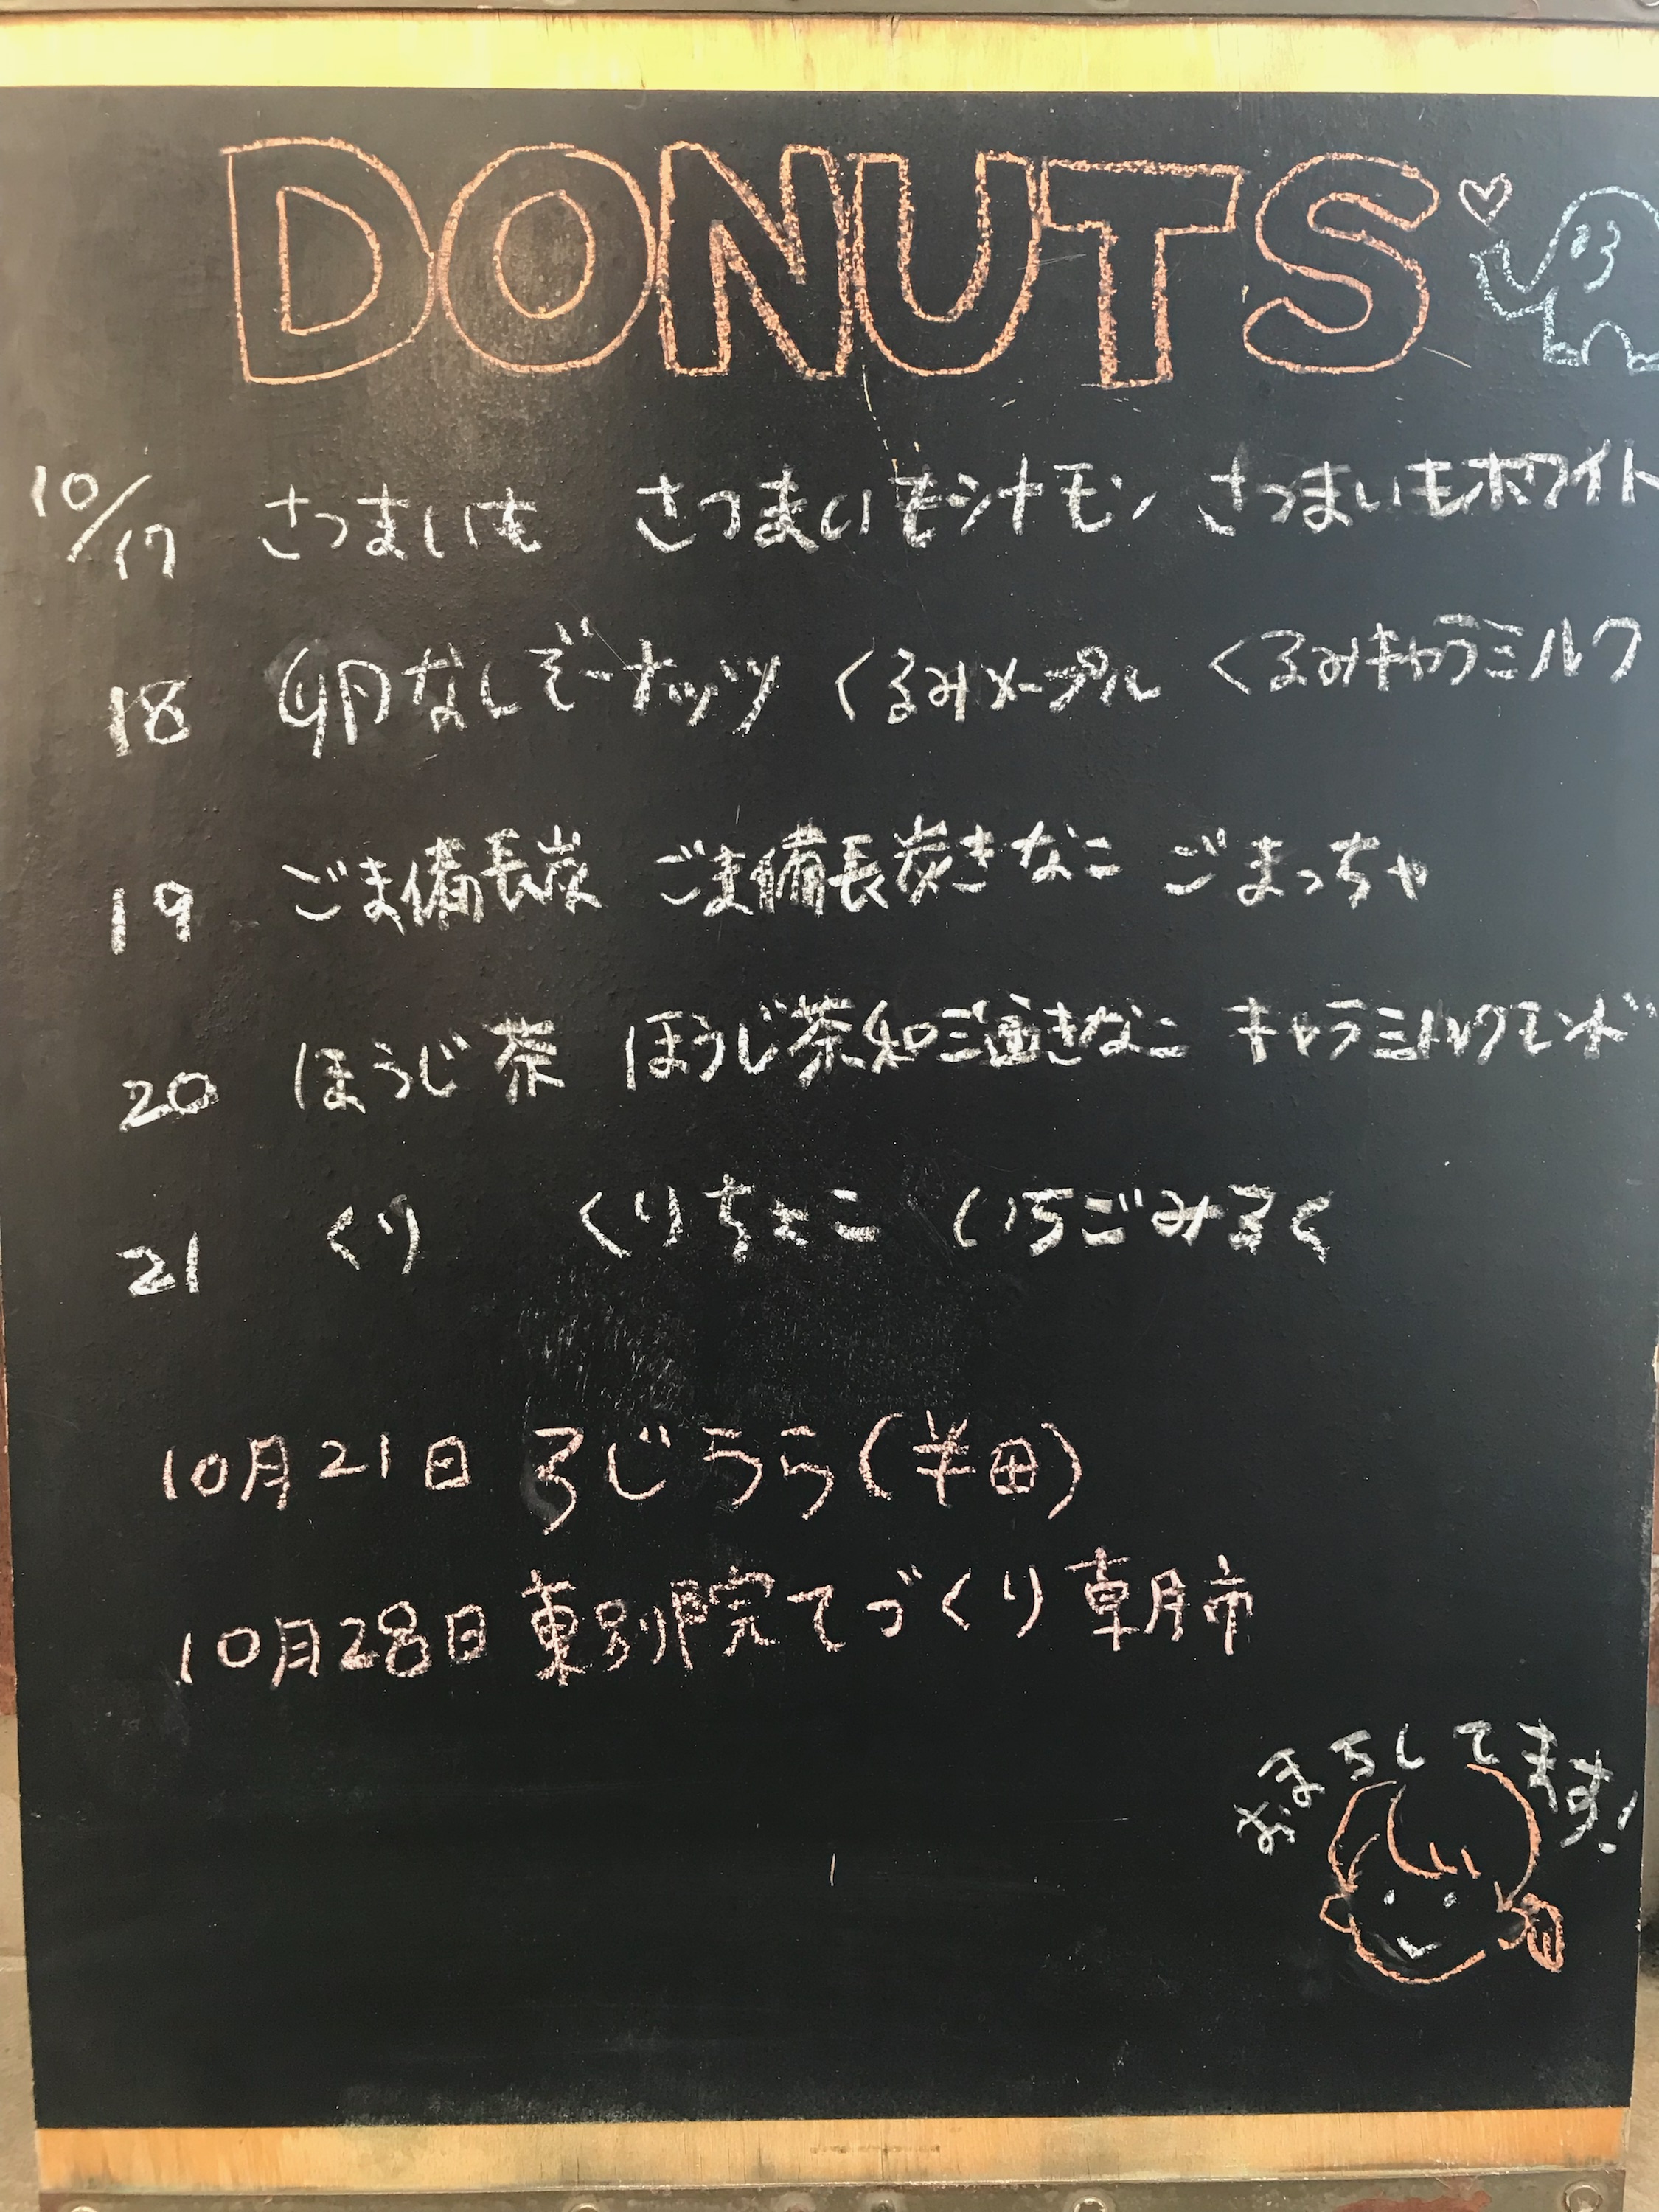 DONUTS
10/17 さつまいも さつまいもシナモン さつまいもホワイト
18 卵なしぞーナッツ くるみメープル くるみキャラミルク
19 ごま備長炭 ごま備長炭きなこ ごまっちゃ
20 ほうじ茶 ほうじ茶和三盆きなこ キャラミルクモンド
21 くり くりちょこ いちごみるく
10月21日 ろじうら(半田)
10月28日 東別院てづくり朝市
おまちしてます!